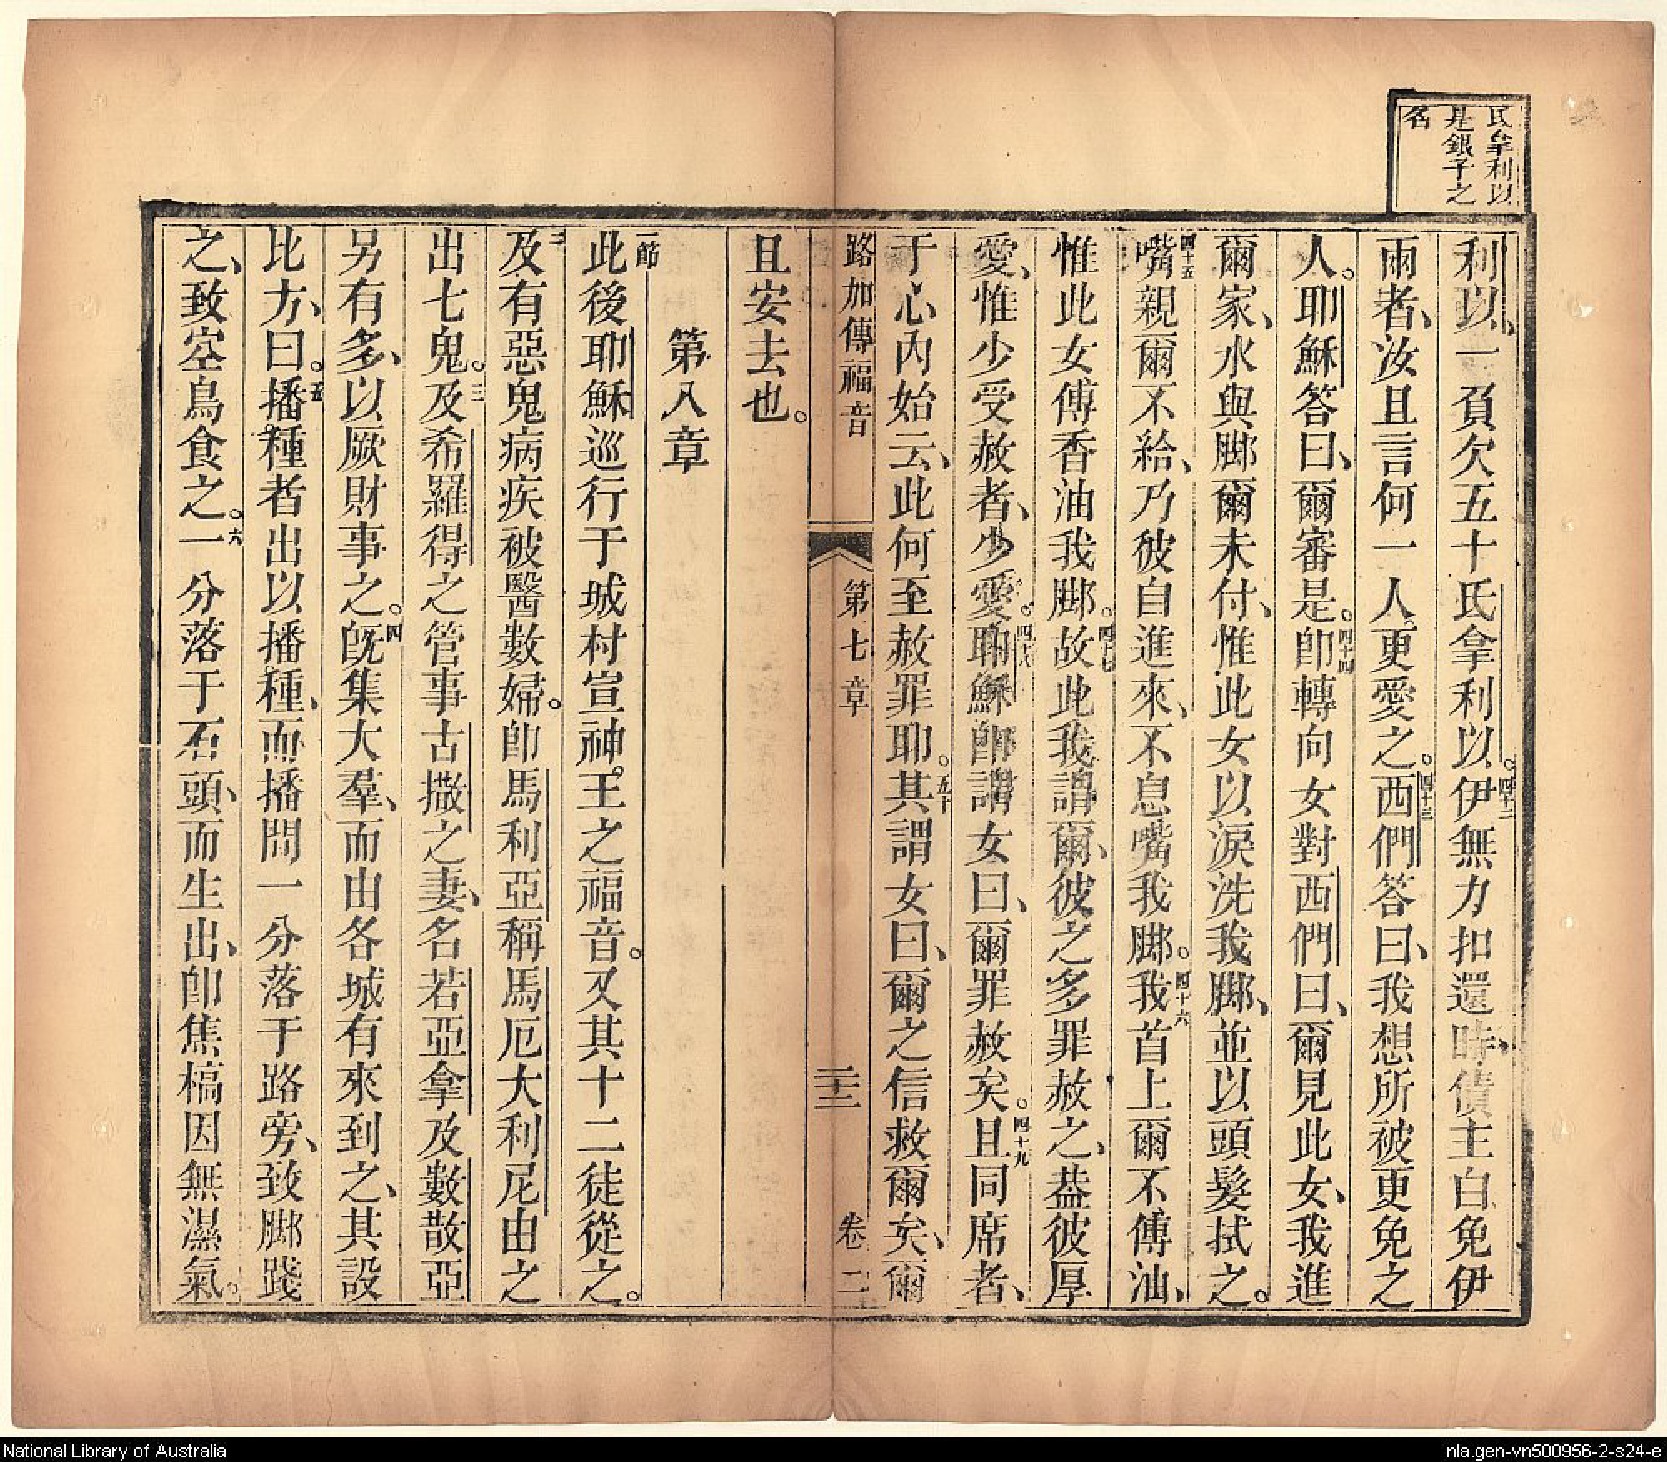 氏拿利以
是銀子之
名
利以、一負欠五十氏拿利以。四十二伊無力扣還時、債主白免伊
兩者、汝且言何一人。更愛之。四十三西們答曰、我想所被更免之
人。耶穌答曰、爾審是。四十四卽轉向女對西們曰、爾見此女、我進
爾家、水與脚爾未付、惟此女以淚洗我脚、並以頭髮拭之。
四十五嘴親爾不給、乃彼自進來、不息嘴我脚。四十六我首上爾不傅油、
惟此女傅香油我脚。四十七故此我謂爾、彼之多罪赦之、葢彼厚
愛、惟少受赦者、少愛。四十八耶穌卽謂女曰、爾罪赦矣。四十九且同席者、
于心內始云、此何至赦罪耶。五十其謂女曰、爾之信救爾矣、爾
路加傳福音 第七章 二十三 卷二
且安去也。
第八章
一節此後耶穌巡行于城村宣神。王之福音。又其十二徒從之。
二及有惡鬼病疾被醫數婦。卽馬利亞稱馬厄大利尼由之
出七鬼。三及希羅得之管事古撒之妻、名若亞拿及數散亞
另有多、以厥財事之。四旣集大羣、而由各城有來到之、其設
比方、曰。五播種者出以播種、而播間一分落于路旁、致脚踐
之、致空鳥食之。六一分落于石頭、而生出、卽焦槁因無濕氣。
National Library of Australia
nla.gen-vn500956-2-s24-e